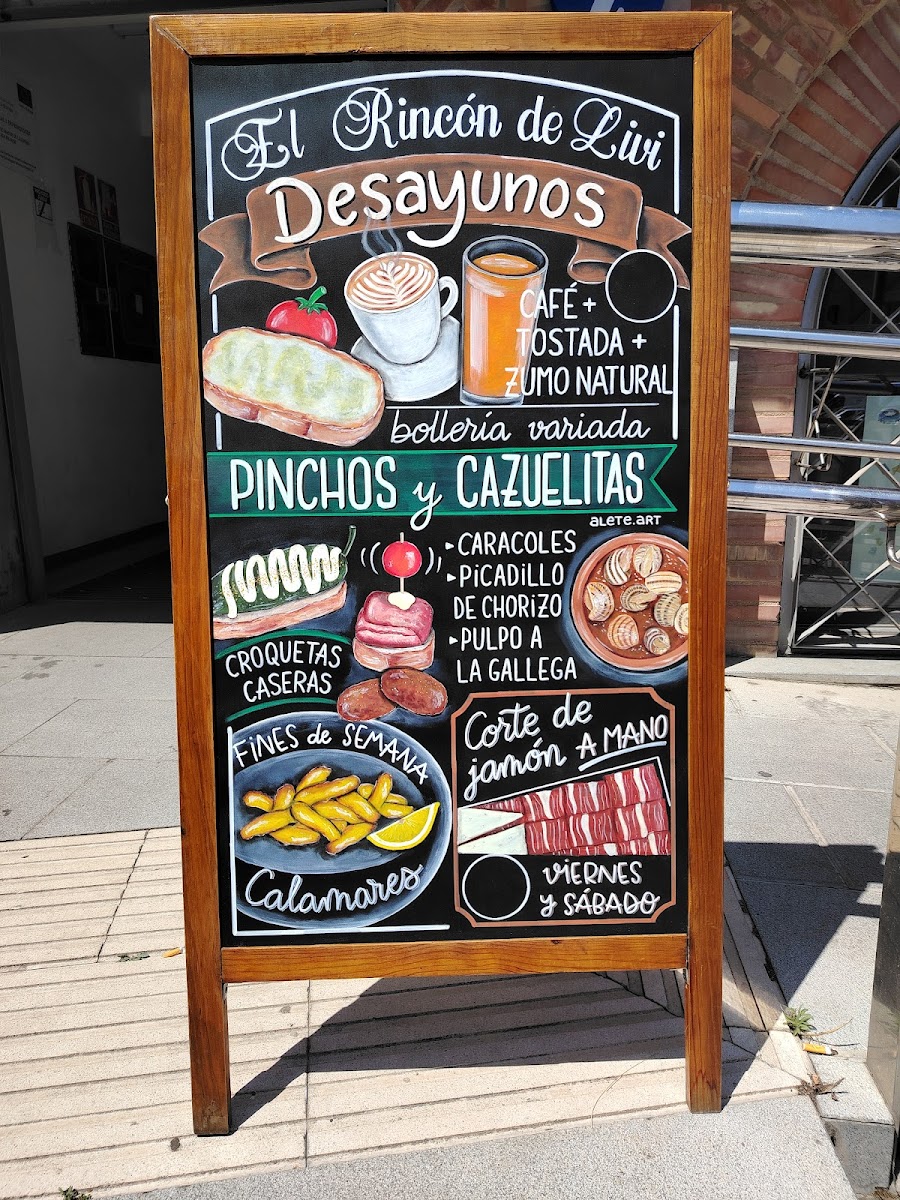 El Rincón de Livi
Desayunos
CAFÉ +
TOSTADA +
ZUMO NATURAL
bollería variada
PINCHOS y CAZUELITAS
aLeTe.aRT
▸CARACOLES
▸PiCADiLLO
DE CHORiZO
▸PULPO A
LA GALLEGA
CROQUETAS
CASERAS
FiNES de SEMANA
Calamares
Corte de
jamón A MANO
ViERNES
y SÁBADO